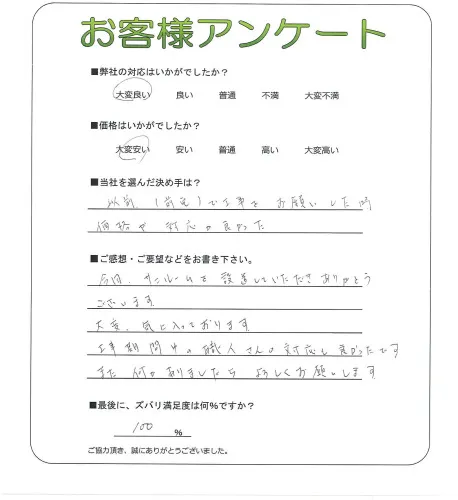 お客様アンケート
■弊社の対応はいかがでしたか？
大変良い 良い 普通 不満 大変不満
■価格はいかがでしたか？
大変安い 安い 普通 高い 大変高い
■当社を選んだ決め手は？
以前、(前宅)で工事をお願いした時
価格や対応が良かった
■ご感想・ご要望などをお書き下さい。
今回、サンルームを設置していただきありがとう
ございます
大変、気に入っております
工事期間中の職人さんの対応も良かったです
また何かありましたらよろしくお願いします
■最後に、ズバリ満足度は何%ですか？
100 %
ご協力頂き、誠にありがとうございました。